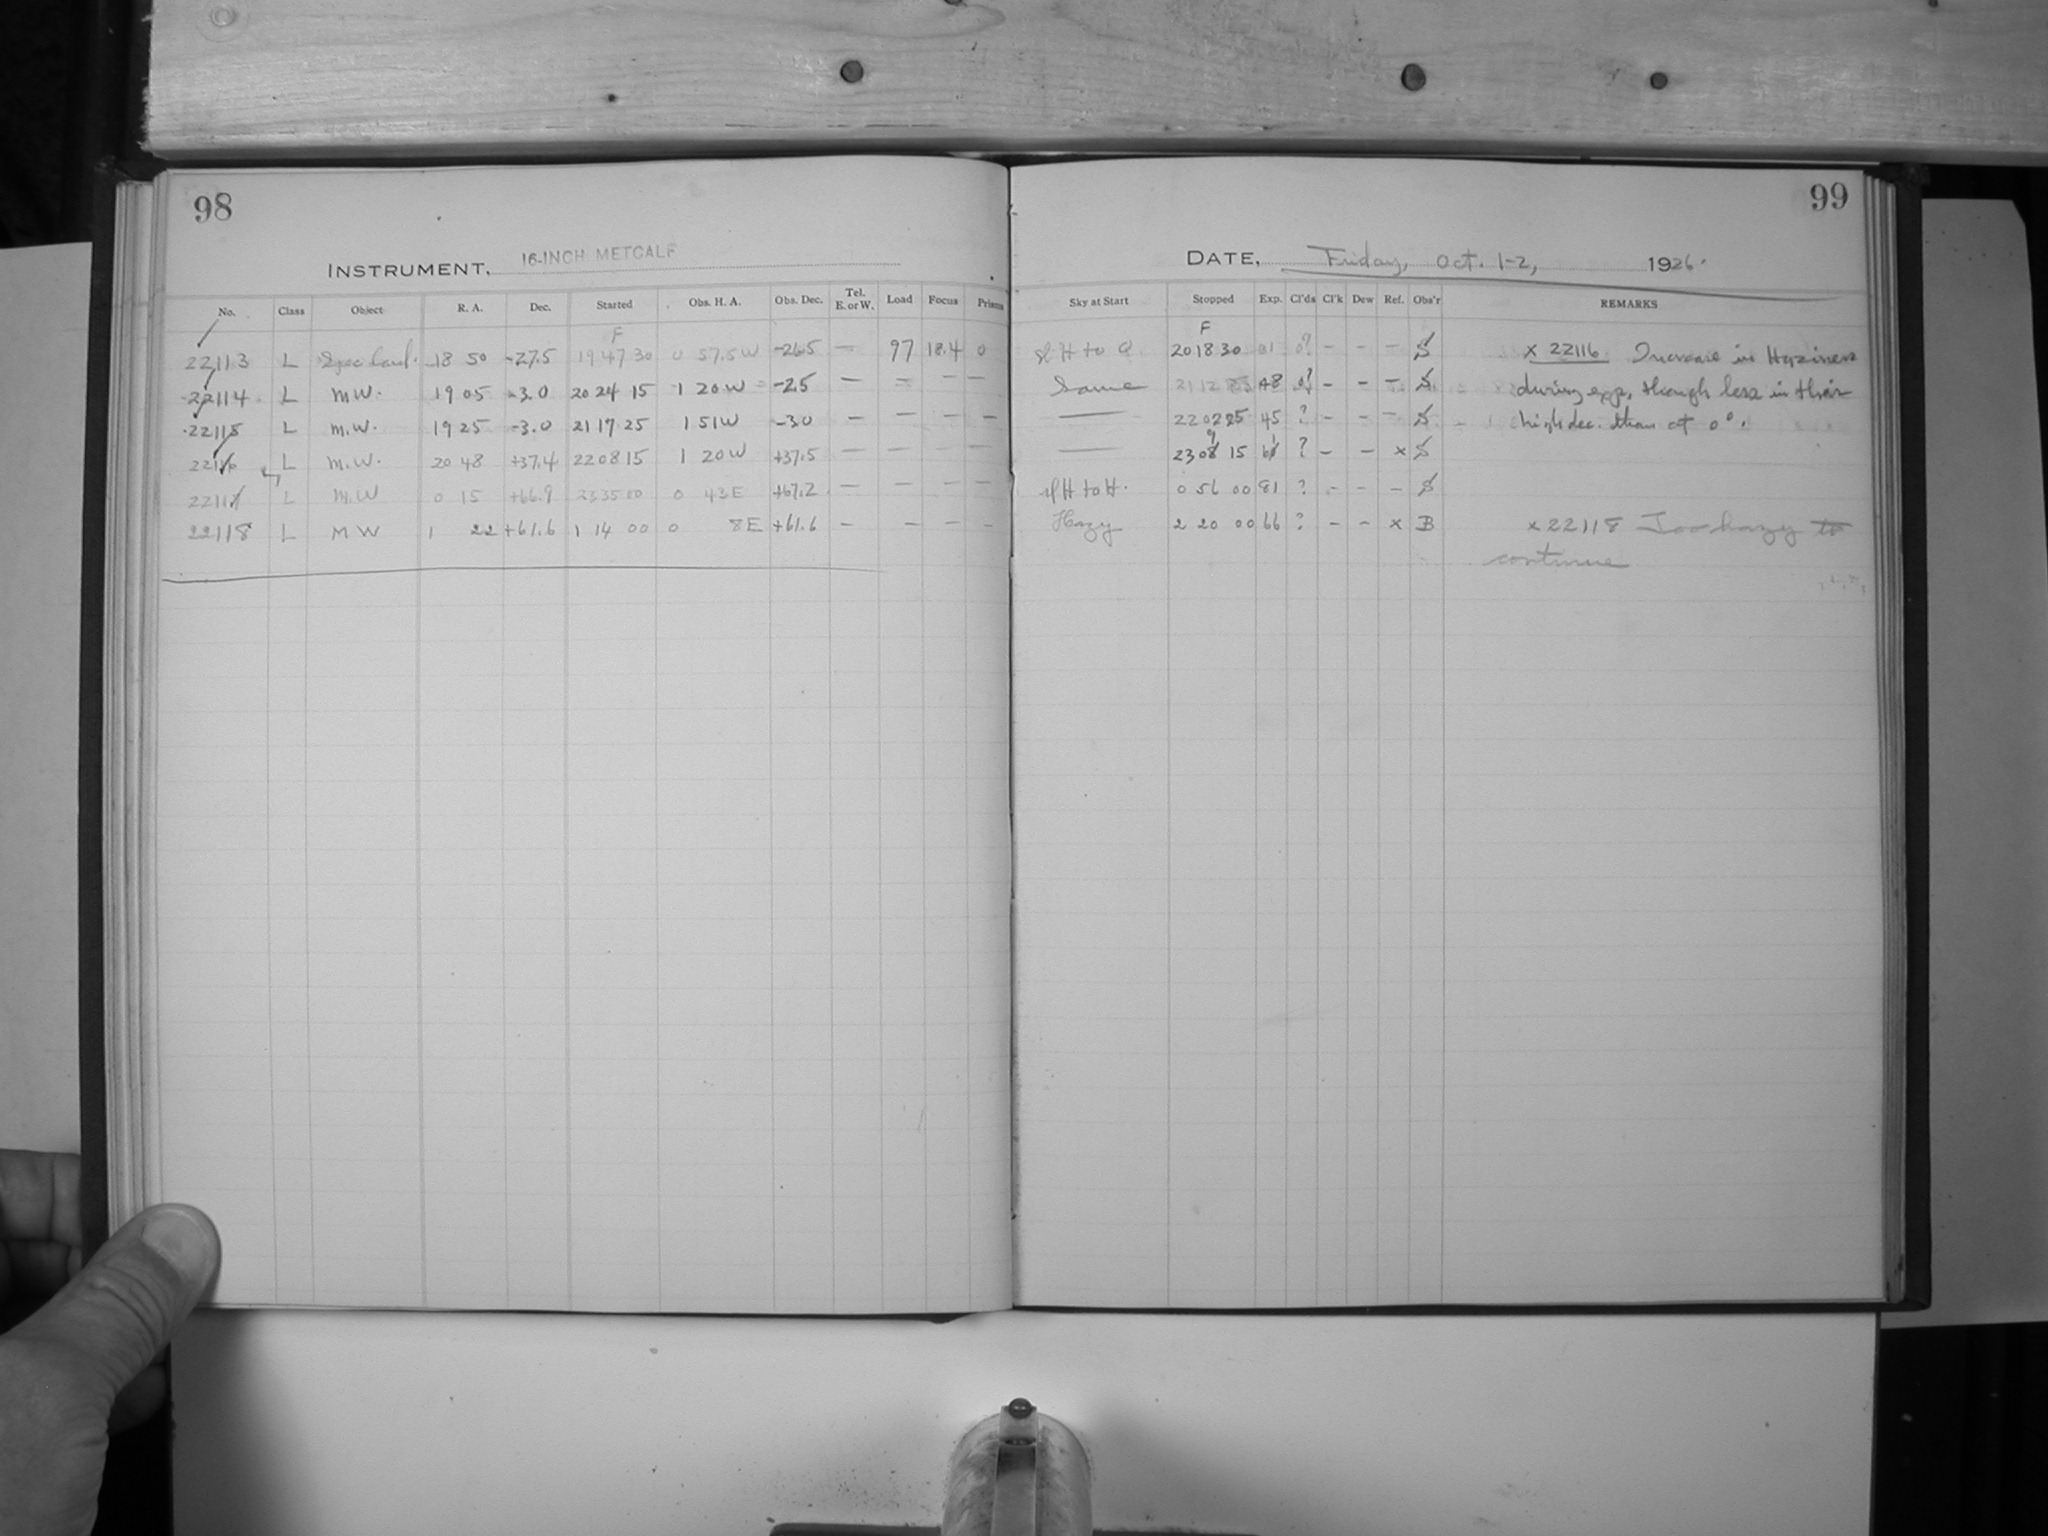 98
INSTRUMENT, 16-INCH METCALF
No. Class Object R. A. Dec. Started Obs. H. A. Obs. Dec. Tel. E. or W. Load Focus Prisms
F
22113 L 18 50 -27.5 19 47 30 0 57.5 W -26.5 — 97 18.4 0
22114 L M.W. 19 05 -3.0 20 24 15 1 20 W -2.5 — — — —
22115 L M.W. 19 25 -3.0 21 17 25 1 51 W -3.0 — — — —
22116 L M.W. 20 48 +37.4 22 08 15 1 20 W +37.5 — — — —
22117 L M.W 0 15 +66.9 23 35 00 0 43 E +67.2 — — — —
22118 L M W 1 22 +61.6 1 14 00 0 8 E +61.6 — — — —
99
DATE, Friday, Oct. 1-2, 1926.
Sky at Start Stopped Exp. Cl'ds Cl'k Dew Ref. Obs'r REMARKS
F
sl H to 20 18 30 31 0? — — — S x 22116 Increase in Haziness
Same 21 12 48 0? — — — S during exp, though less in this
— 22 02 25 45 ? — — — S high dec. than at 0°.
— 23 09 15 61 ? — — x S
sl H to H. 0 56 00 81 ? — — — S
Hazy 2 20 00 66 ? — — x B x 22118 Too hazy to
continue